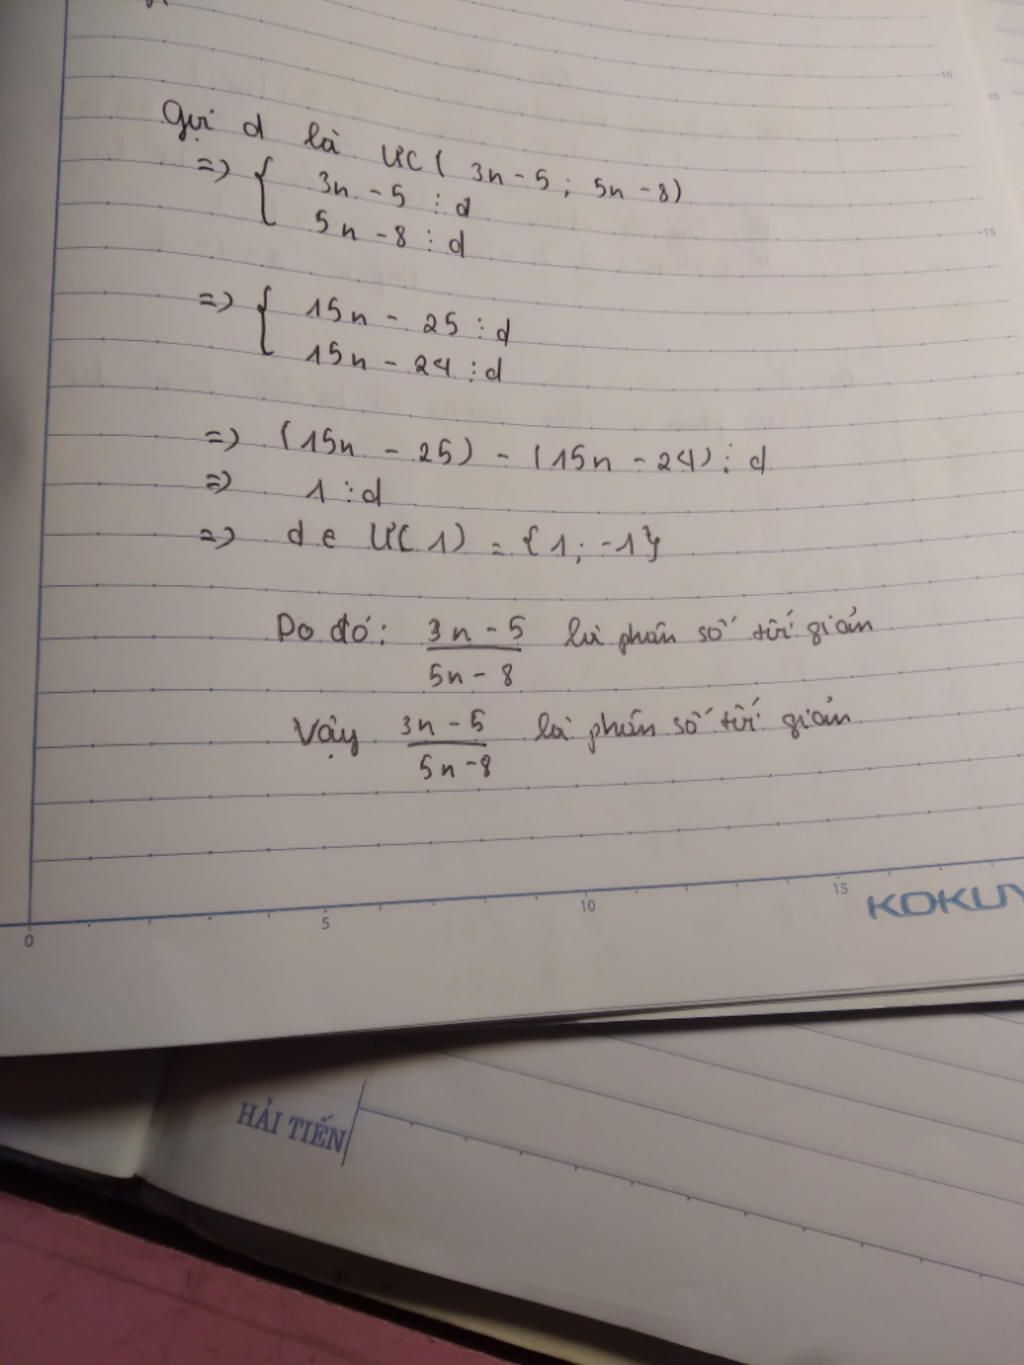 Gọi d là ƯC( 3n - 5 ; 5n - 8)
=> { 3n - 5 ⋮ d
5n - 8 ⋮ d
=> { 15n - 25 ⋮ d
15n - 24 ⋮ d
=> (15n - 25) - (15n - 24) ⋮ d
=> 1 ⋮ d
=> d ∈ Ư( 1) = {1; -1}
Do đó: 3n - 5 / 5n - 8 là phân số tối giản
Vậy 3n - 5 / 5n - 8 là phân số tối giản
0 5 10 15
KOKUY
HẢI TIẾN
10
10
15